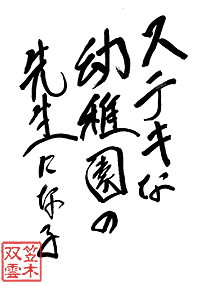 ステキな
幼稚園の
先生になる
笠木
双雲